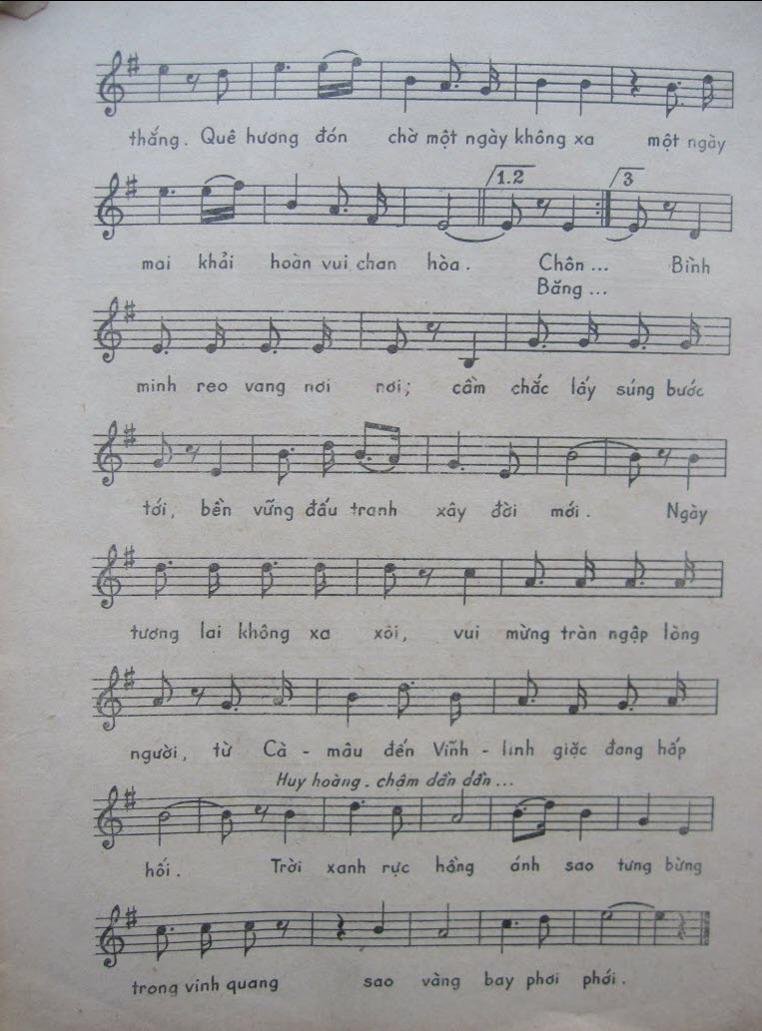 thắng. Quê hương đón chờ một ngày không xa một ngày
1.2 3
mai khải hoàn vui chan hòa. Chôn ... Bình
Băng ...
minh reo vang nơi nơi; cầm chắc lấy súng bước
tới, bền vững đấu tranh xây đời mới. Ngày
tương lai không xa xôi, vui mừng tràn ngập lòng
người, từ Cà - mâu đến Vĩnh - linh giặc đang hấp
Huy hoàng. chậm dần dần ...
hối. Trời xanh rực hồng ánh sao tưng bừng
trong vinh quang sao vàng bay phơi phới.